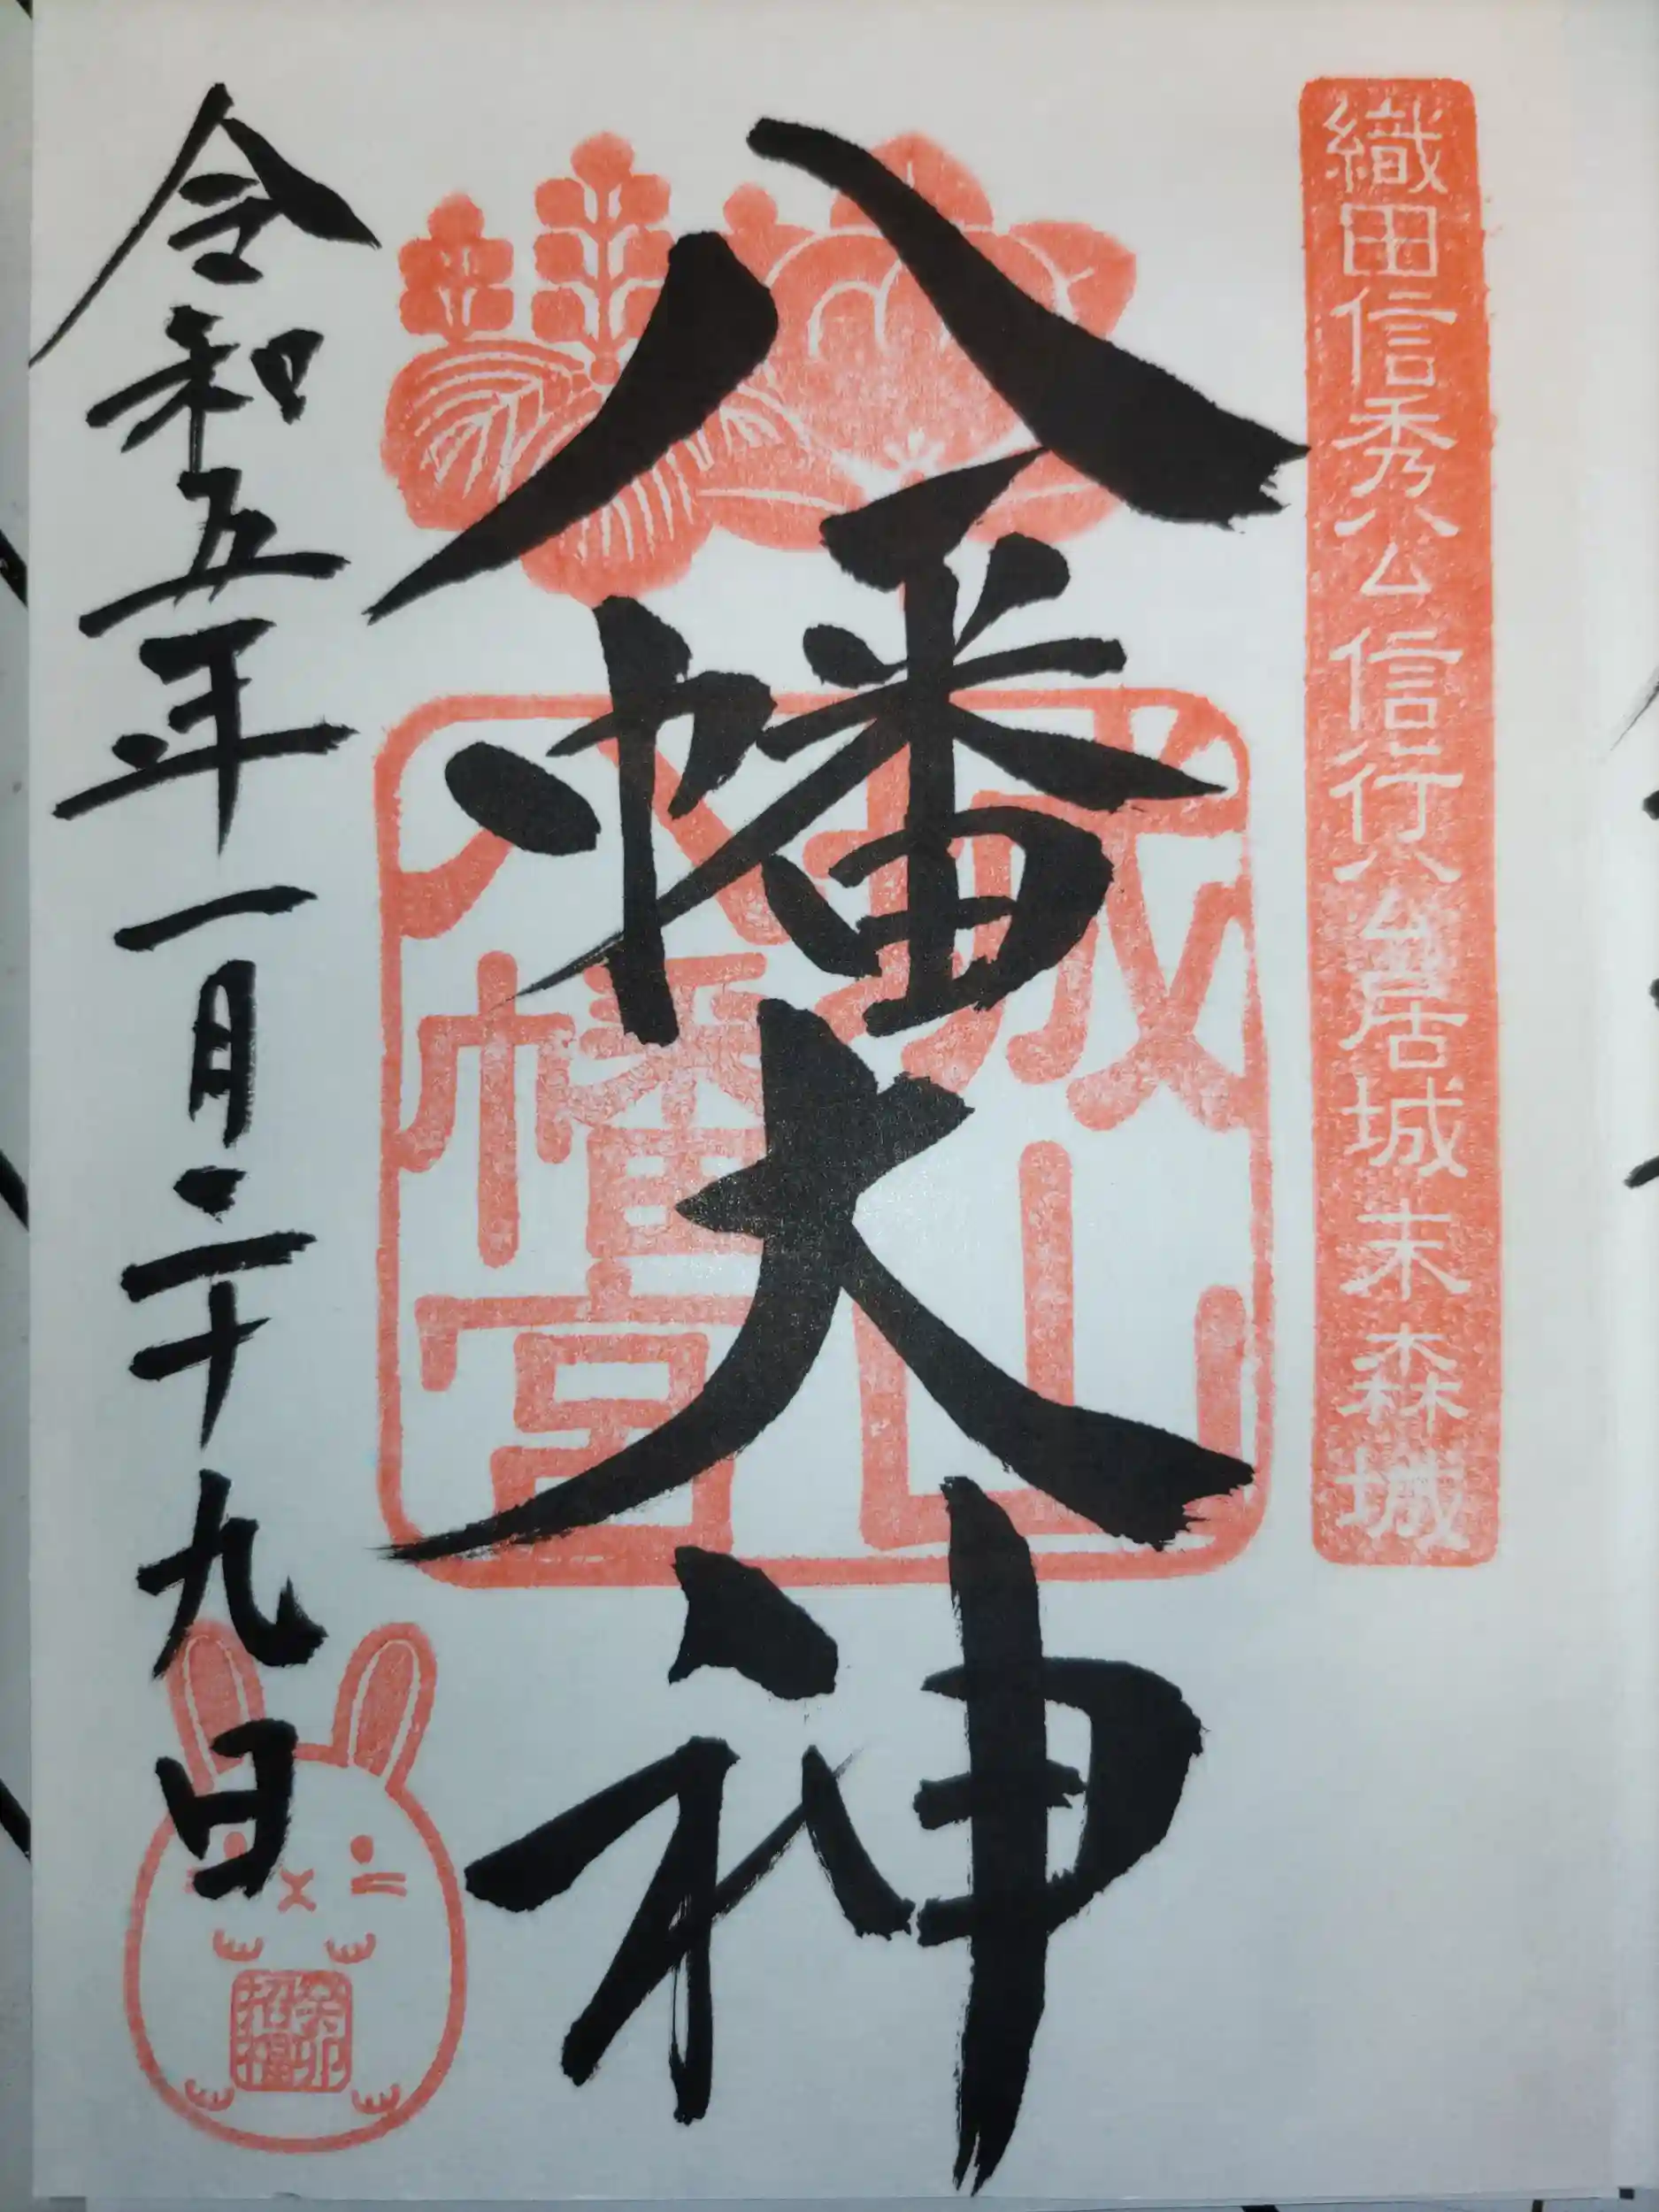 織田信秀公信行公居城末森城
八幡大神
城山
八幡宮
令和五年一月二十九日
癸卯
招福